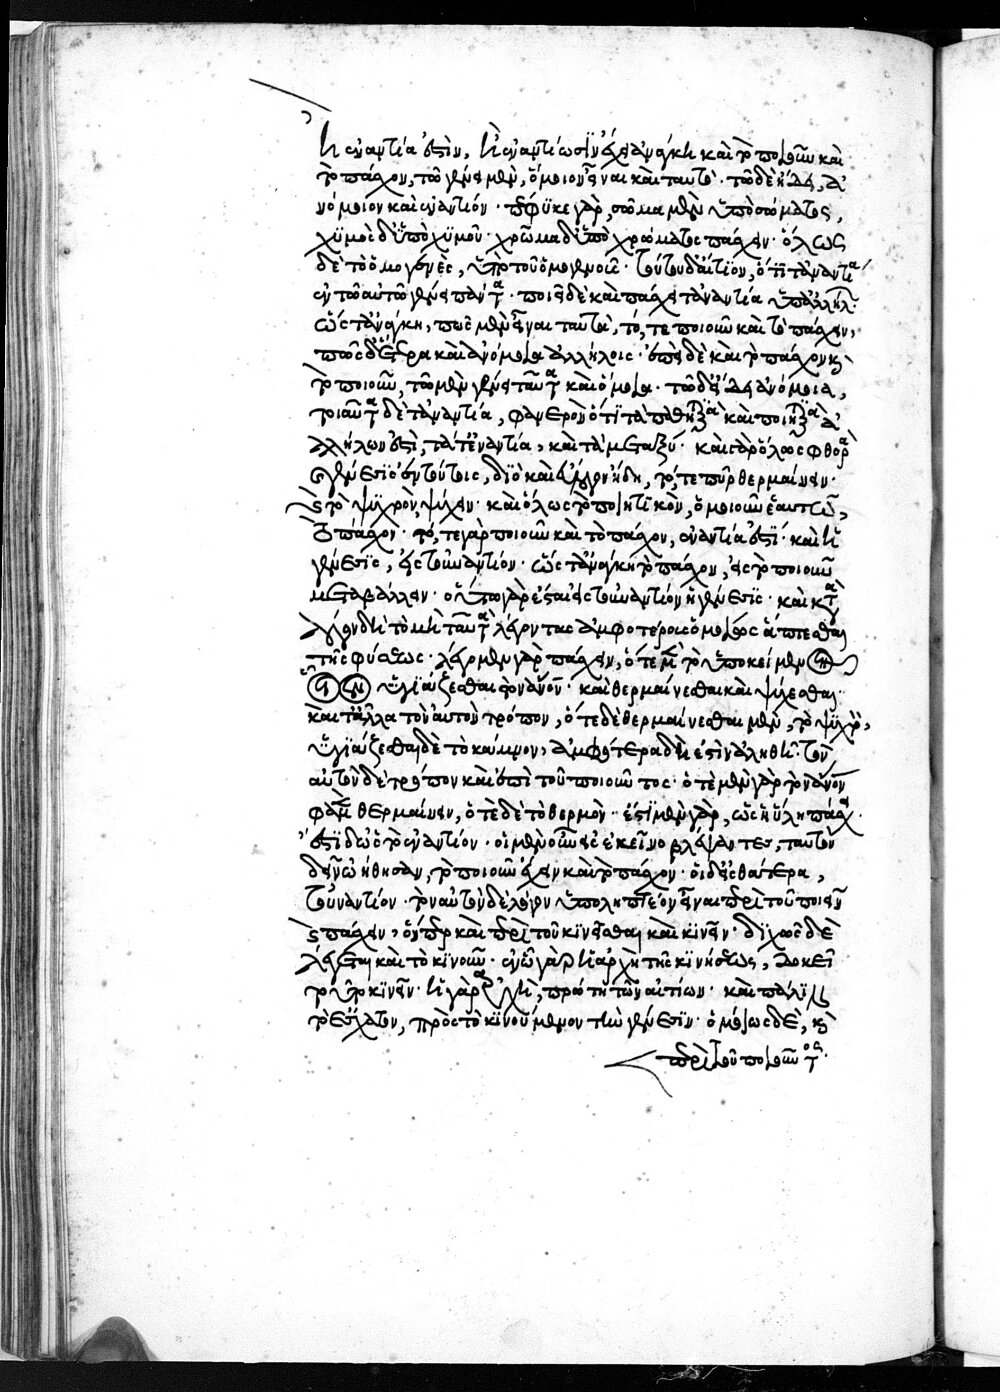 ἢ ἐναντία ἐστὶν, ἢ ἐναντίωσιν ἔχει ἀνάγκη καὶ τὸ ποιοῦν καὶ
τὸ πάσχον, τῶ γένει μὲν, ὅμοιον εἶναι καὶ ταυτό· τῶ δὲ εἴδει, ἀ
νόμοιον καὶ ἐναντίον· πέφυκε γὰρ, σῶμα μὲν ὑπὸ σώματος,
χϋμὸς δ' ὑπὸ χϋμοῦ· χρῶμα δ' ὑπὸ χρώματος πάσχειν· ὅλως
δὲ τὸ ὁμογενὲς, ὑπὸ τοῦ ὁμογενοῦς· τούτου δ' αἴτϊον, ὅτι τἀναντί
ἐν τῶ αὐτῶ γένει πάντα· ποιεῖ δὲ καὶ πάσχει τἀναντία ὑπ' ἀλλήλ
ὥστ' ἀνάγκη, πῶς μὲν εἶναι ταυτὰ, τό, τε ποιοῦν καὶ τὸ πάσχον,
πῶς δ' ἕτερα καὶ ἀνόμοια ἀλλήλοις· ἐπεὶ δὲ καὶ τὸ πάσχον καὶ
τὸ ποιοῦν, τῶ μὲν γένει ταυτὰ καὶ ὅμοια· τῶ δ' εἴδει ἀνόμοια,
τοιαῦτα δὲ τἀναντία, φανερὸν ὅτι τὰ παθητικὰ καὶ ποιητικὰ ἀ
λλήλων ἐστὶ, τά τ' ἐναντία, καὶ τὰ μεταξύ· καὶ γὰρ ὅλως φθορὰ
καὶ γένεσις ἐν τούτοις, διὸ καὶ εὔλογον ἤδη, τό, τε πῦρ θερμαίνειν·
καὶ τὸ ψϋχρὸν, ψύχειν· καὶ ὅλως τὸ ποιητϊκὸν, ὁμοιοῦν ἑαυτῶ,
τὸ πάσχον· τό, τε γὰρ ποιοῦν καὶ τὸ πάσχον, ἐναντία ἐστὶ· καὶ ἡ
γένεσις, εἰς τοὐναντίον· ὥστ' ἀνάγκη τὸ πάσχον, εἰς τὸ ποιοῦν
μεταβάλλειν· οὕτω γὰρ ἔσται εἰς τοὐναντίον ἡ γένεσις· καὶ κατὰ
λόγον δὴ τὸ μὴ ταῦτα λέγοντας ἀμφοτέρους ὅμως ἅπτεσθαι
τῆς φύσεως· λέγομεν γὰρ πάσχειν, ὁτὲ μὲν τὸ ὑποκείμενον
ὑγϊάζεσθαι τὸν ἄνον· καὶ θερμαίνεσθαι καὶ ψύχεσθαι·
καὶ τἄλλα τὸν αὐτὸν τρόπον, ὁτὲ δὲ θερμαίνεσθαι μὲν, τὸ ψυχρὸν,
ὑγϊάζεσθαι δὲ τὸ κάμνον, ἀμφότερα δὴ ἐστὶν ἀληθῆ· τὸν
αὐτὸν δὲ τρόπον καὶ ἐπὶ τοῦ ποιοῦντος· ὁτὲ μὲν γὰρ τὸν ἄνον
φαμὲν θερμαίνειν, ὁτὲ δὲ τὸ θερμὸν· ἔστϊ μὲν γὰρ, ὡς ἡ ὕλη πάσχει
ἔστϊ δ' ὡς τὸ ἐναντίον· οἱ μὲν οὖν εἰς ἐκεῖνο βλέψαντες, ταυτόν τι
δεῖν ὠήθησαν, τὸ ποιοῦν ἔχειν καὶ τὸ πάσχον· οἱ δ' εἰς θάτερα,
τοὐναντίον· τὸν αὐτὸν δὲ λόγον ὑποληπτέον εἶναι περὶ τοῦ ποιεῖν
καὶ πάσχειν, ὅνπερ καὶ περὶ τοῦ κϊνεῖσθαι καὶ κϊνεῖν· δϊχῶς δὲ
λέγεται καὶ τὸ κϊνοῦν· ἐν ὧ γὰρ ἡ ἀρχὴ τῆς κϊνήσεως, δοκεῖ
τοῦτο κϊνεῖν· ἡ γὰρ ἀρχὴ, πρώτη τῶν αἰτίων· καὶ πάλϊν
τὸ ἔσχατον, πρὸς τὸ κϊνούμενον καὶ τὴν γένεσϊν· ὁμοίως δὲ, καὶ
περὶ τοῦ ποιοῦντος·